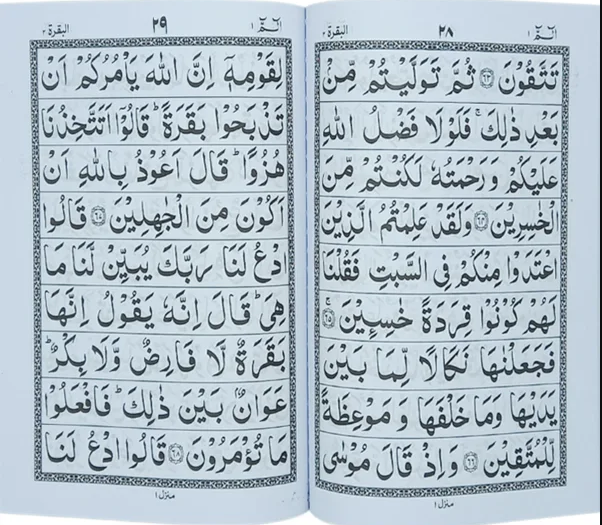 الٓمّٓ ١
٢٨
البقرة ٢
تَتَّقُوْنَ ﴿٦٣﴾ ثُمَّ تَوَلَّيْتُمْ مِّنْۢ
بَعْدِ ذٰلِكَ ۚ فَلَوْلَا فَضْلُ اللّٰهِ
عَلَيْكُمْ وَرَحْمَتُهٗ لَكُنْتُمْ مِّنَ
الْخٰسِرِيْنَ ﴿٦٤﴾ وَلَقَدْ عَلِمْتُمُ الَّذِيْنَ
اعْتَدَوْا مِنْكُمْ فِى السَّبْتِ فَقُلْنَا
لَهُمْ كُوْنُوْا قِرَدَةً خٰسِـِٕيْنَ ﴿٦٥﴾ۚ
فَجَعَلْنٰهَا نَكَالًا لِّمَا بَيْنَ
يَدَيْهَا وَمَا خَلْفَهَا وَ مَوْعِظَةً
لِّلْمُتَّقِيْنَ ﴿٦٦﴾ وَاِذْ قَالَ مُوْسٰى
منزل ١
الٓمّٓ ١
٢٩
البقرة ٢
لِقَوْمِهٖۤ اِنَّ اللّٰهَ يَاْمُرُكُمْ اَنْ
تَذْبَحُوْا بَقَرَةً ؕ قَالُوْۤا اَتَتَّخِذُنَا
هُزُوًا ؕ قَالَ اَعُوْذُ بِاللّٰهِ اَنْ
اَكُوْنَ مِنَ الْجٰهِلِيْنَ ﴿٦٧﴾ قَالُوا
ادْعُ لَنَا رَبَّكَ يُبَيِّنْ لَّنَا مَا
هِىَ ؕ قَالَ اِنَّهٗ يَقُوْلُ اِنَّهَا
بَقَرَةٌ لَّا فَارِضٌ وَّلَا بِكْرٌ ؕ
عَوَانٌۢ بَيْنَ ذٰلِكَ ؕ فَافْعَلُوْا
مَا تُؤْمَرُوْنَ ﴿٦٨﴾ قَالُوا ادْعُ لَنَا
منزل ١